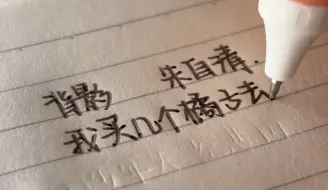 背影 朱自清.
我买几个橘子去